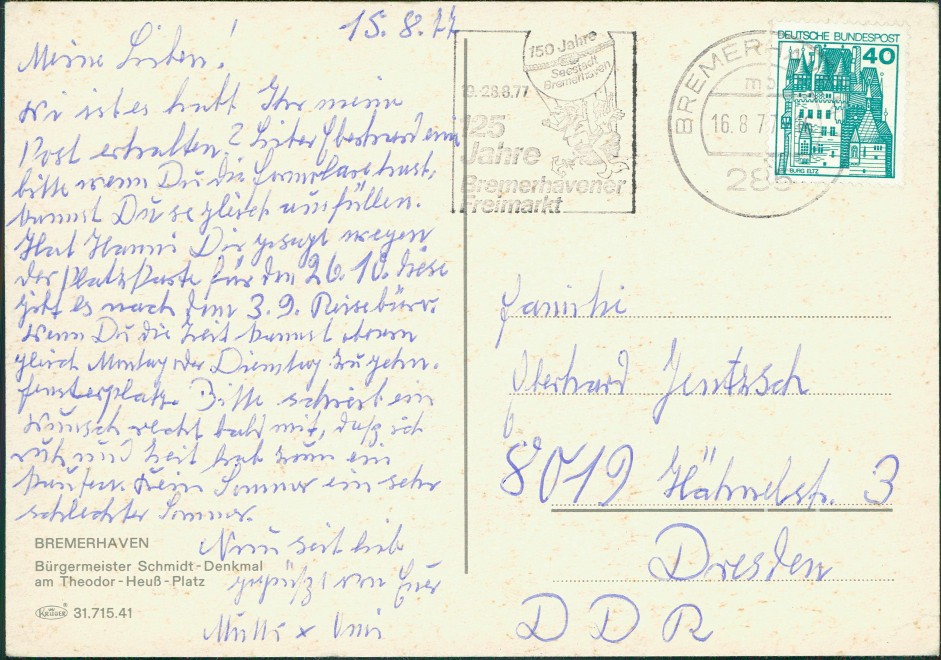 15.8.77
Meine Lieben!
Wie ist es habt Ihr meine
Post erhalten? Lieber Eberhard eine
bitte wenn Du die Formulare hast,
kannst Du se gleich ausfüllen.
Hat Hanni Dir gesagt wegen
der Platzkarte für den 26.10. diese
gibt es nach dem 3.9. Reisebüro.
Wenn Du die Zeit kannst
gleich Montag oder Dienstag zu gehn.
Fensterplatz. Bitte schreib ein
Wunsch recht bald mit, daß ich
ruh und Zeit hab zum ein
kaufen. Kein Sommer ein sehr
schlechter Sommer.
Nun seit lieb
gegrüßt von Euer
Mutti x
BREMERHAVEN
Bürgermeister Schmidt-Denkmal
am Theodor-Heuß-Platz
KRÜGER 31.715.41
150 Jahre
Seestadt
Bremerhaven
19.-28.8.77
125
Jahre
Bremerhavener
Freimarkt
BREMERHAVEN
16.8.77
285
DEUTSCHE BUNDESPOST
40
BURG ELTZ
Familie
Eberhard Jentzsch
8019 Hähnelstr. 3
Dresden
DDR